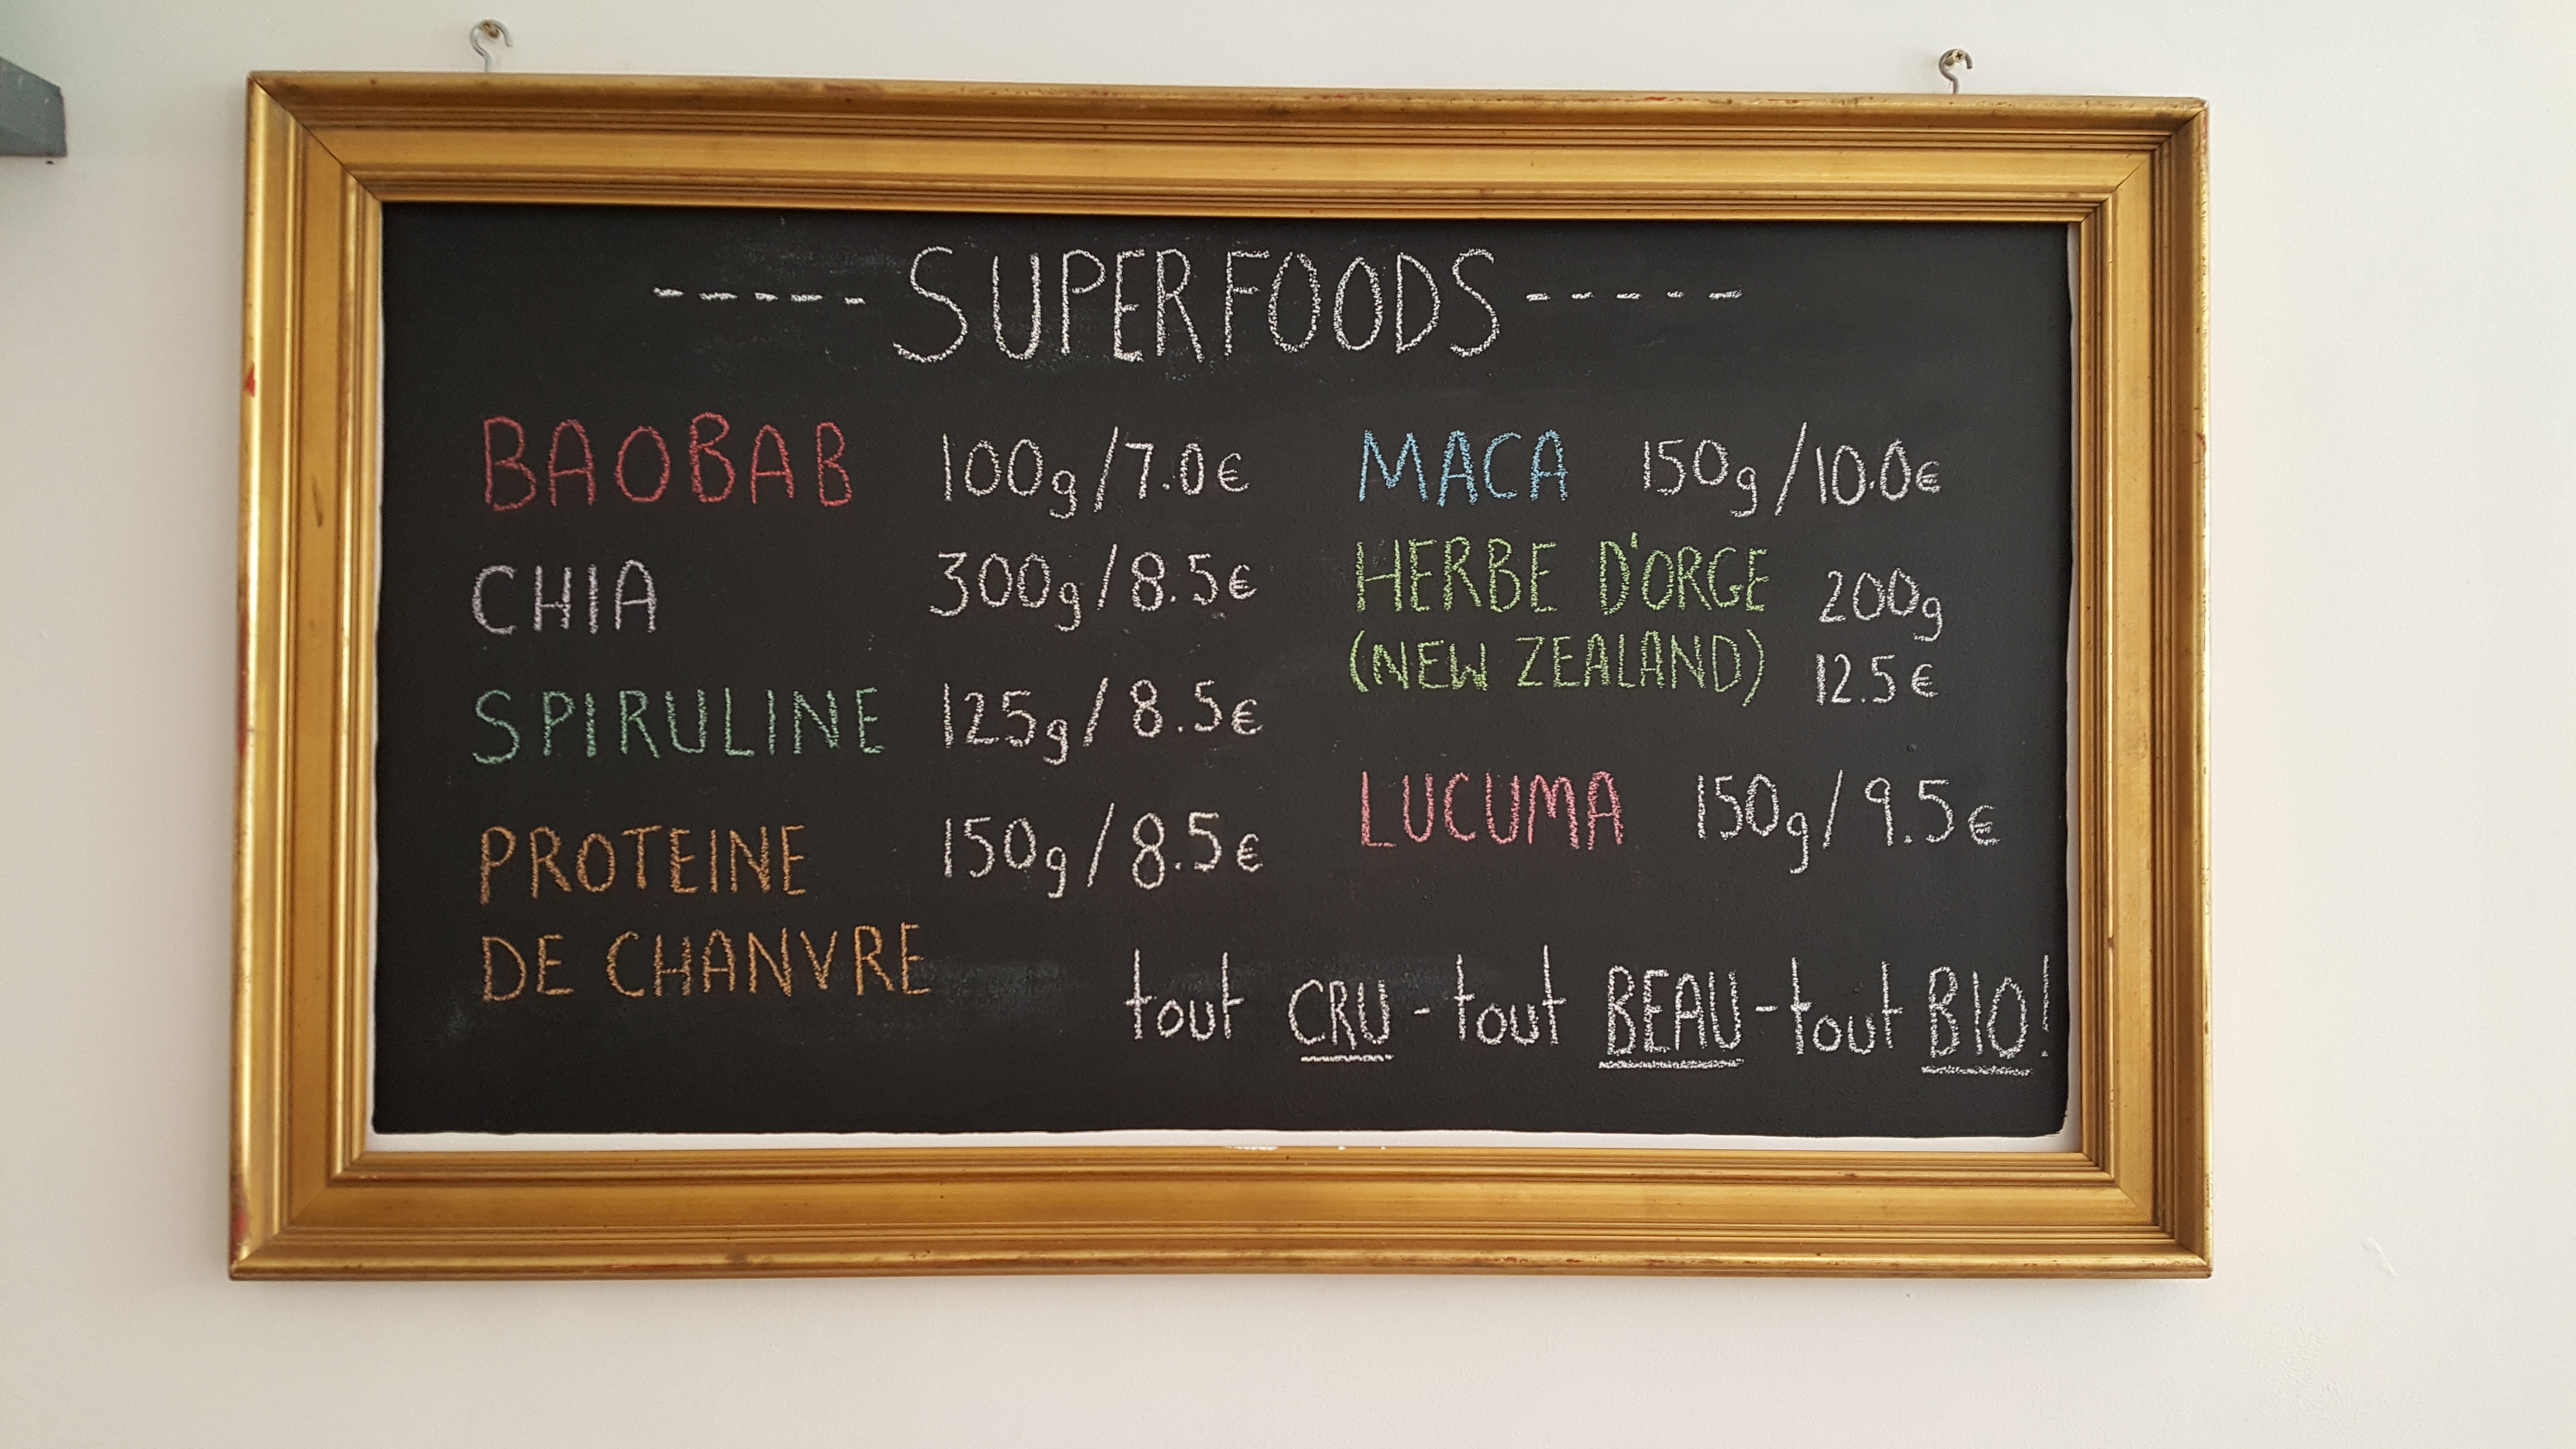 ----- SUPERFOODS -----
BAOBAB 100g/7.0€
CHIA 300g/8.5€
SPIRULINE 125g/8.5€
PROTEINE 150g/8.5€
DE CHANVRE
MACA 150g/10.0€
HERBE D'ORGE 200g
(NEW ZEALAND) 12.5€
LUCUMA 150g/9.5€
tout CRU - tout BEAU - tout BIO!